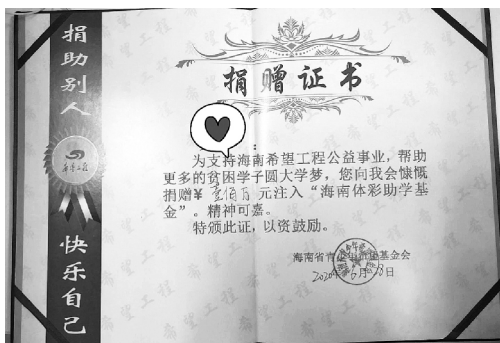 捐助别人
希望工程
快乐自己
捐赠证书
:
为支持海南希望工程公益事业，帮助
更多的贫困学子圆大学梦，您向我会慷慨
捐赠￥壹佰万元注入“海南体彩助学基
金”。精神可嘉。
特颁此证，以资鼓励。
海南省青少年希望基金会
2020年6月28日